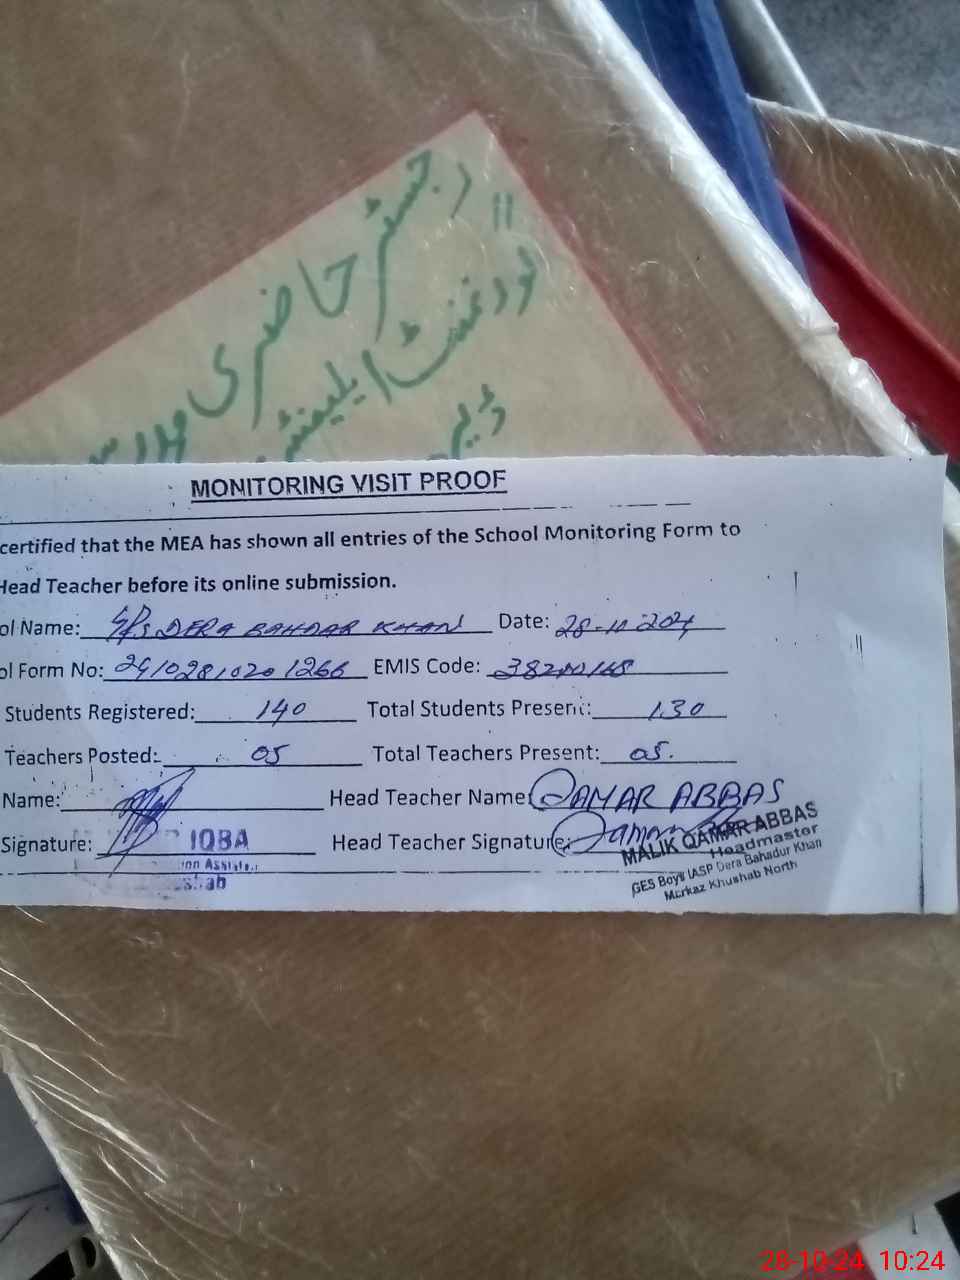 رجسٹر حاضری مدرسین
گورنمنٹ ایلیمنٹری
ڈیرہ
MONITORING VISIT PROOF
certified that the MEA has shown all entries of the School Monitoring Form to
Head Teacher before its online submission.
ol Name: GPS DERA BAHDAR KHAN Date: 28-10-204
ol Form No: 2410281020 1266 EMIS Code:
Students Registered: 140 Total Students Present: 130
Teachers Posted: 05 Total Teachers Present: 05.
Name: Head Teacher Name: QAMAR ABBAS
Signature: IQBA Head Teacher Signature: Qamar
MALIK QAMAR ABBAS
Headmaster
GES Boys IASP Dera Bahadur Khan
Markaz Khushab North
28-10-24 10:24